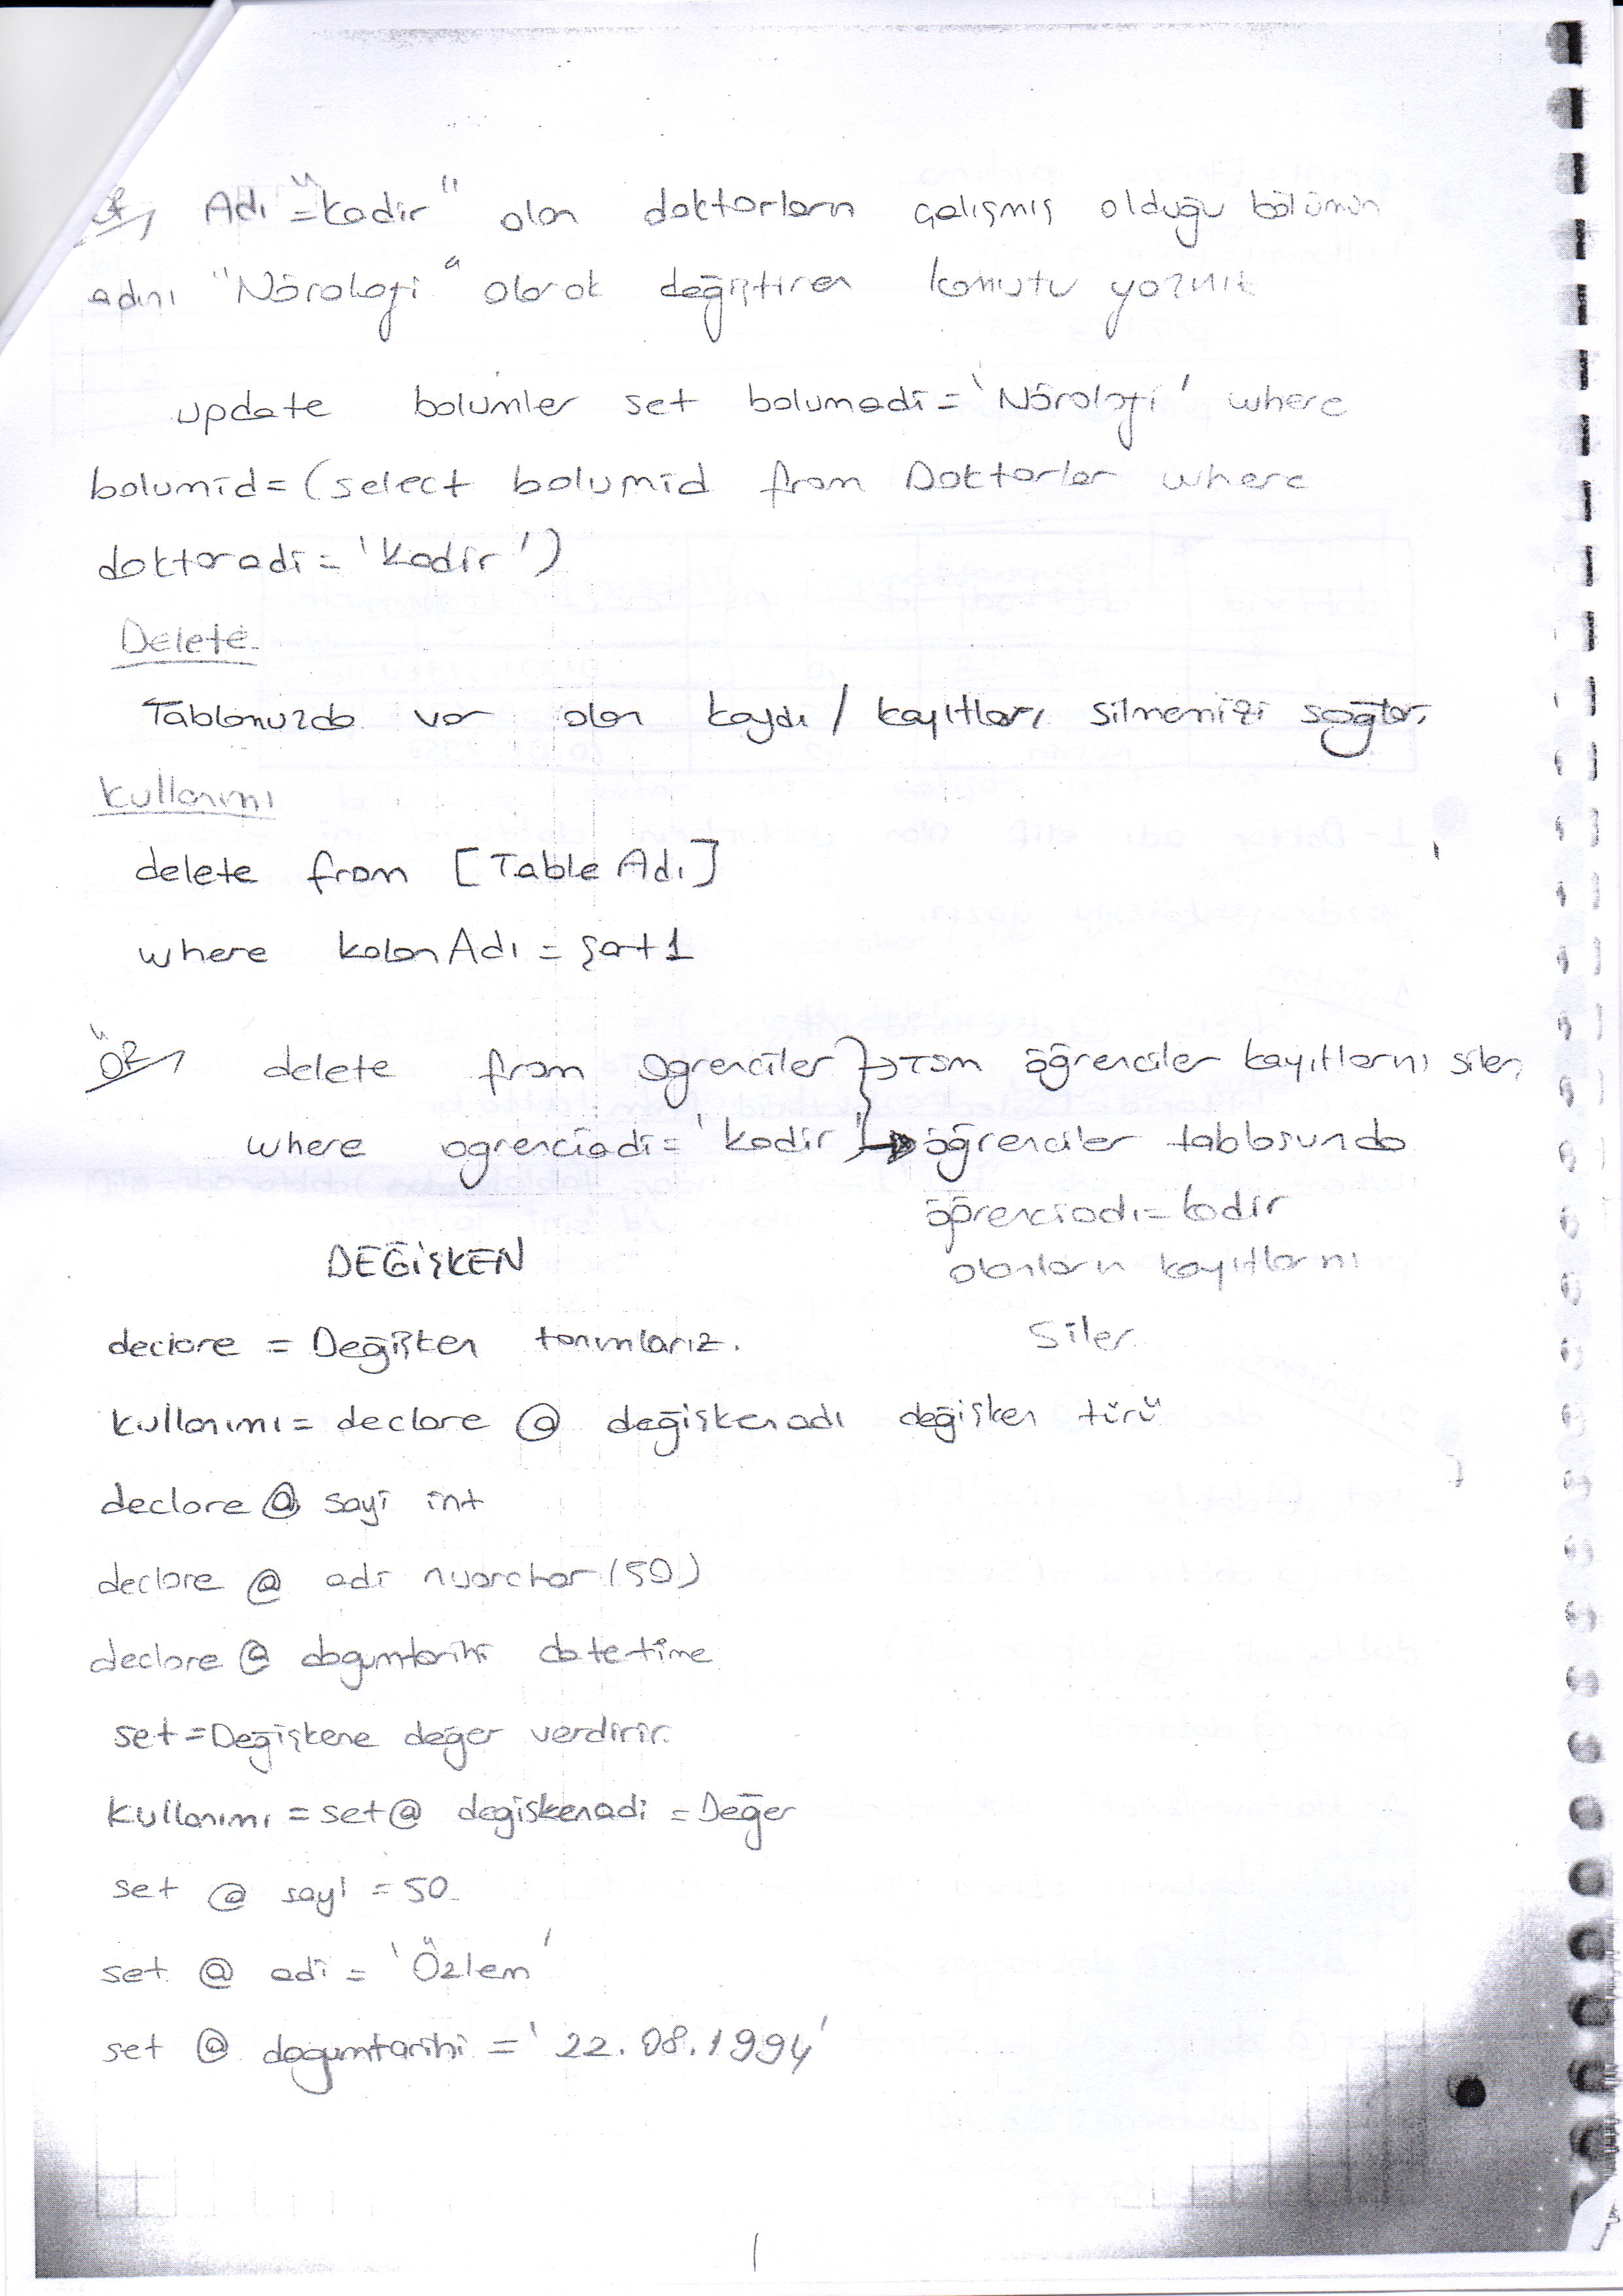 Öz/ Adı = "Kadir" olan doktorların çalışmış olduğu bölümün
adını "Nöroloji" olarak değiştiren komutu yazınız
update bolumler set bolumadi = 'Nöroloji' where
bolumid = (select bolumid from Doktorlar where
doktoradi = 'Kadir')
Delete
Tablonuzda var olan kaydı / kayıtları silmemizi sağlar.
Kullanımı
delete from [Table Adı]
where kolonAdı = şart1
Öz/ delete from Ogrenciler } → Tüm öğrenciler kayıtlarını siler,
where ogrenciadi = 'Kadir' → öğrenciler tablosunda
öğrenciadı = kadir
olanların kayıtlarını
DEĞİŞKEN
siler.
declare = Değişken tanımlarız.
Kullanımı = declare @ değişkenadı değişken türü
declare @ sayi int
declare @ adi nvarchar (50)
declare @ dogumtarihi datetime
set = Değişkene değer verdirir.
Kullanımı = set @ degiskenadi = Değer
set @ sayi = 50
set @ adi = 'Özlem'
set @ dogumtarihi = '22.08.1994'